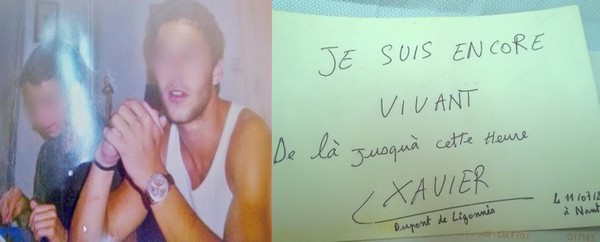 JE SUIS ENCORE
VIVANT
De là jusquà cette Heure
XAVIER
Dupont de Ligonnès
Le 11/07/
à Nant